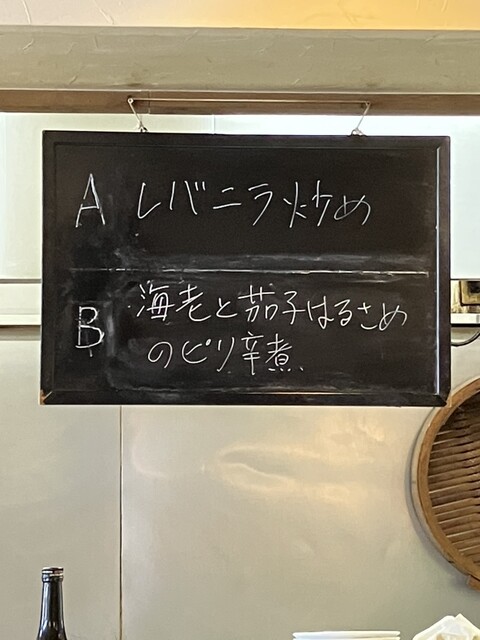 A レバニラ炒め
B 海老と茄子はるさめ
のピリ辛煮